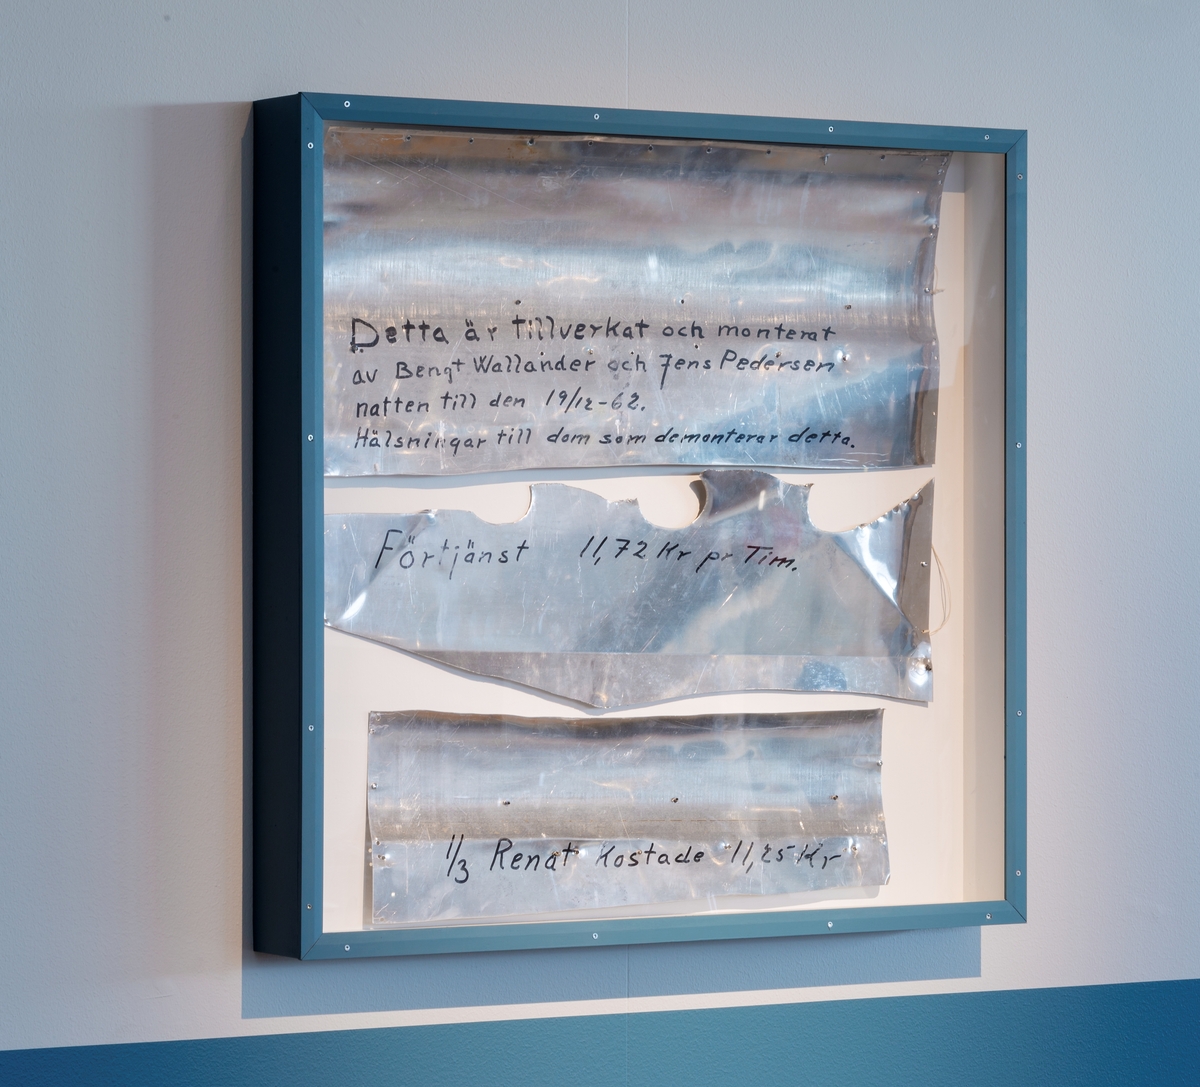 Detta är tillverkat och monterat
av Bengt Wallander och Jens Pedersen
natten till den 19/12-62.
Hälsningar till dom som demonterar detta.
Förtjänst 11,72 Kr pr Tim.
1/3 Renat Kostade 11,25 Kr